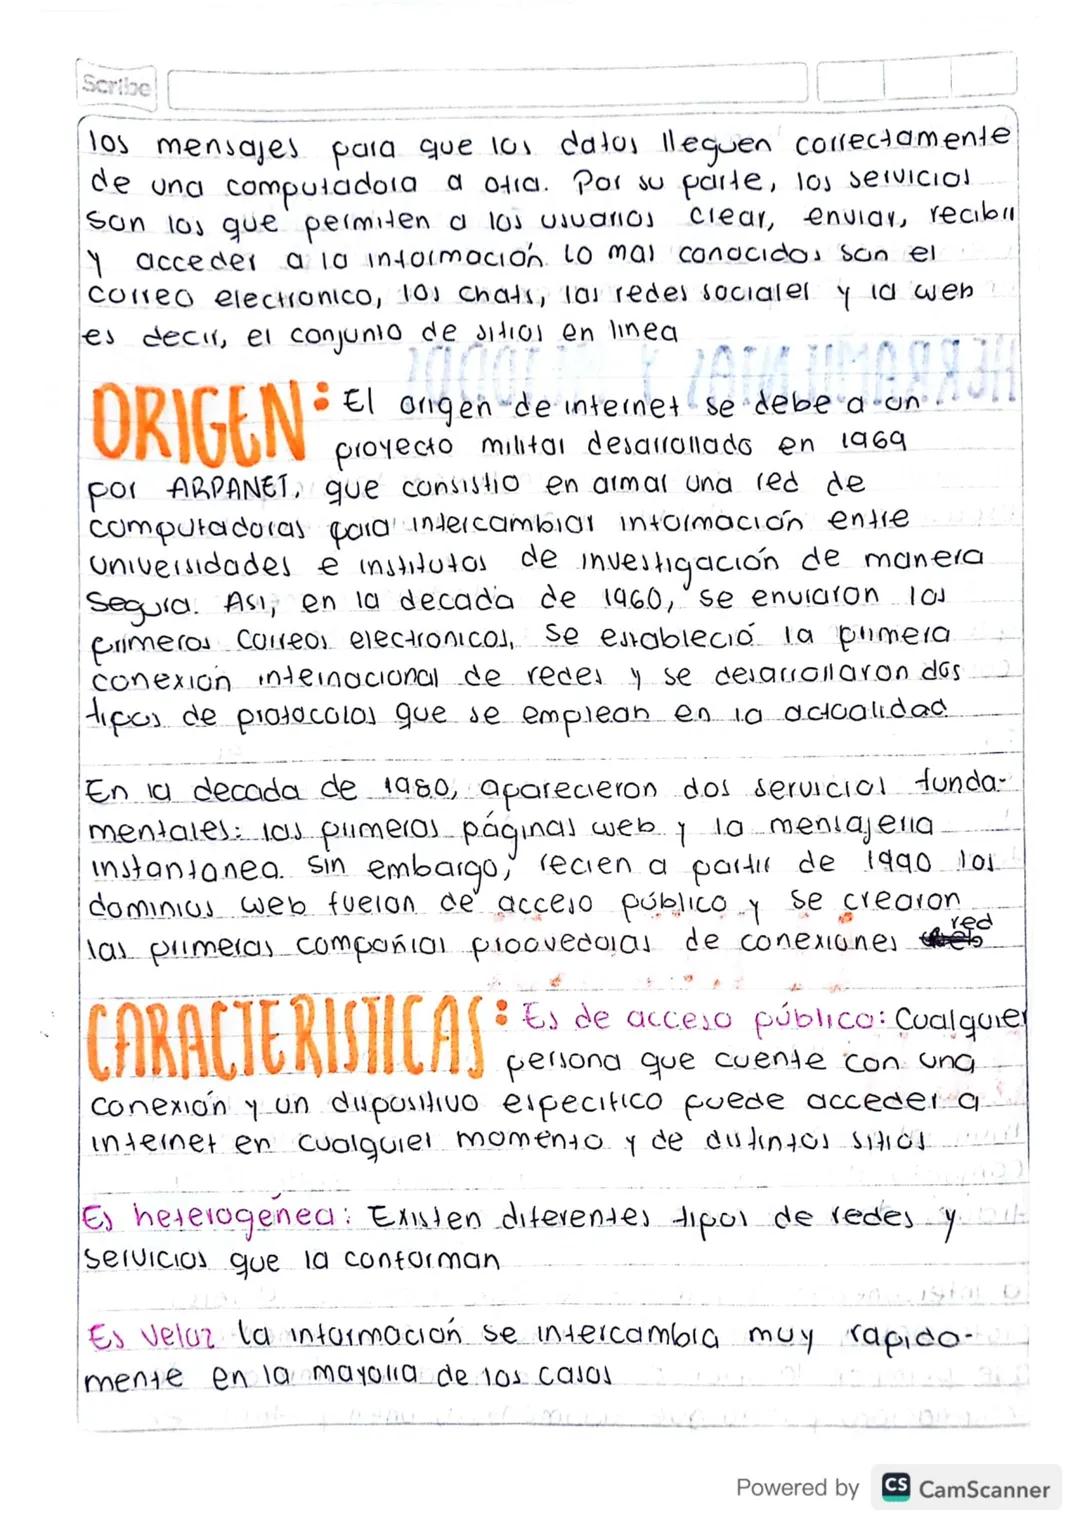 Scribe
los mensajes para que los datos lleguen correctamente
de una computadora a otra. Por su parte, los servicios
son los que permiten a los usuarios crear, enviar, recibir
y acceder a la información. Lo mas conocidos son el
correo electronico, los chats, las redes sociales y la web
es decir, el conjunto de sitios en linea
ORIGEN: El origen de internet se debe a un
proyecto militar desarrollado en 1969
por ARPANET, que consistio en armar una red de
computadoras para intercambiar información entre
universidades e institutos de investigación de manera
Segura. Asi, en la decada de 1960, se enviaron los
primeros correos electronicos, se estableció la primera
conexión internacional de redes y se desarrollaron dos
tipos de protocolos que se emplean en la actualidad
En la decada de 1980, aparecieron dos servicios funda-
mentales: las primeras páginas web y la mensajeria
instantanea. Sin embargo, recien a partir de 1990 los
dominios web fueron de acceso público y se crearon
las primeras compañias proovedoras de conexiones red
CARACTERISTICAS: Es de acceso público: Cualquier
persona que cuente con una
conexión y un dispositivo especifico puede acceder a
internet en cualquier momento y de distintos sitios
Es heterogénea: Existen diferentes tipos de redes y
servicios que la conforman
Es veloz La información se intercambia muy rapida-
mente en la mayoria de los casos
Powered by CS CamScanner